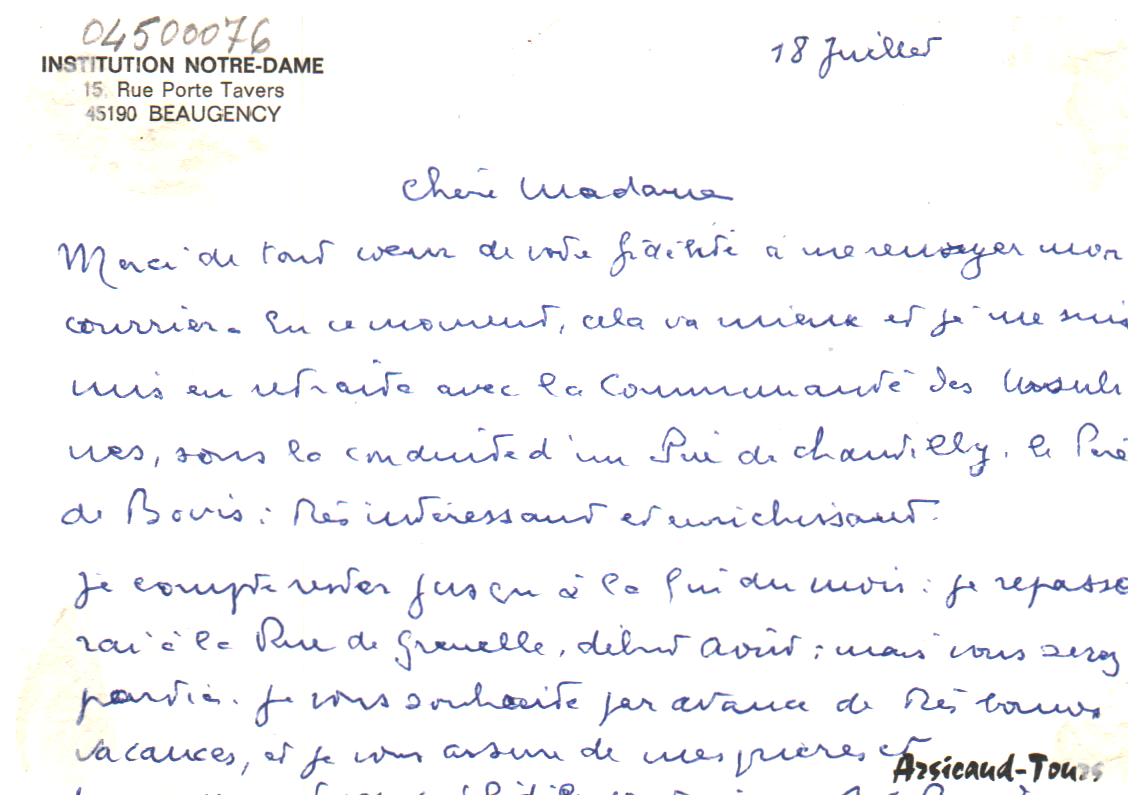 04500076
INSTITUTION NOTRE-DAME
15, Rue Porte Tavers
45190 BEAUGENCY
18 Juillet
Chère Madame
Merci de tout cœur de votre fidélité à me renvoyer mon
courrier. En ce moment, cela va mieux et je me suis
mis en retraite avec la Communauté des Ursuli
nes, sous la conduite d'un Père de Chantilly, le Père
de Bovis : très intéressant et enrichissant.
Je compte rester jusqu'à la fin du mois : je repasse
rai à la Rue de Grenelle, début Août ; mais vous serez
partie. Je vous souhaite par avance de très bonnes
vacances, et je vous assure de mes prières et
Arsicaud-Tours